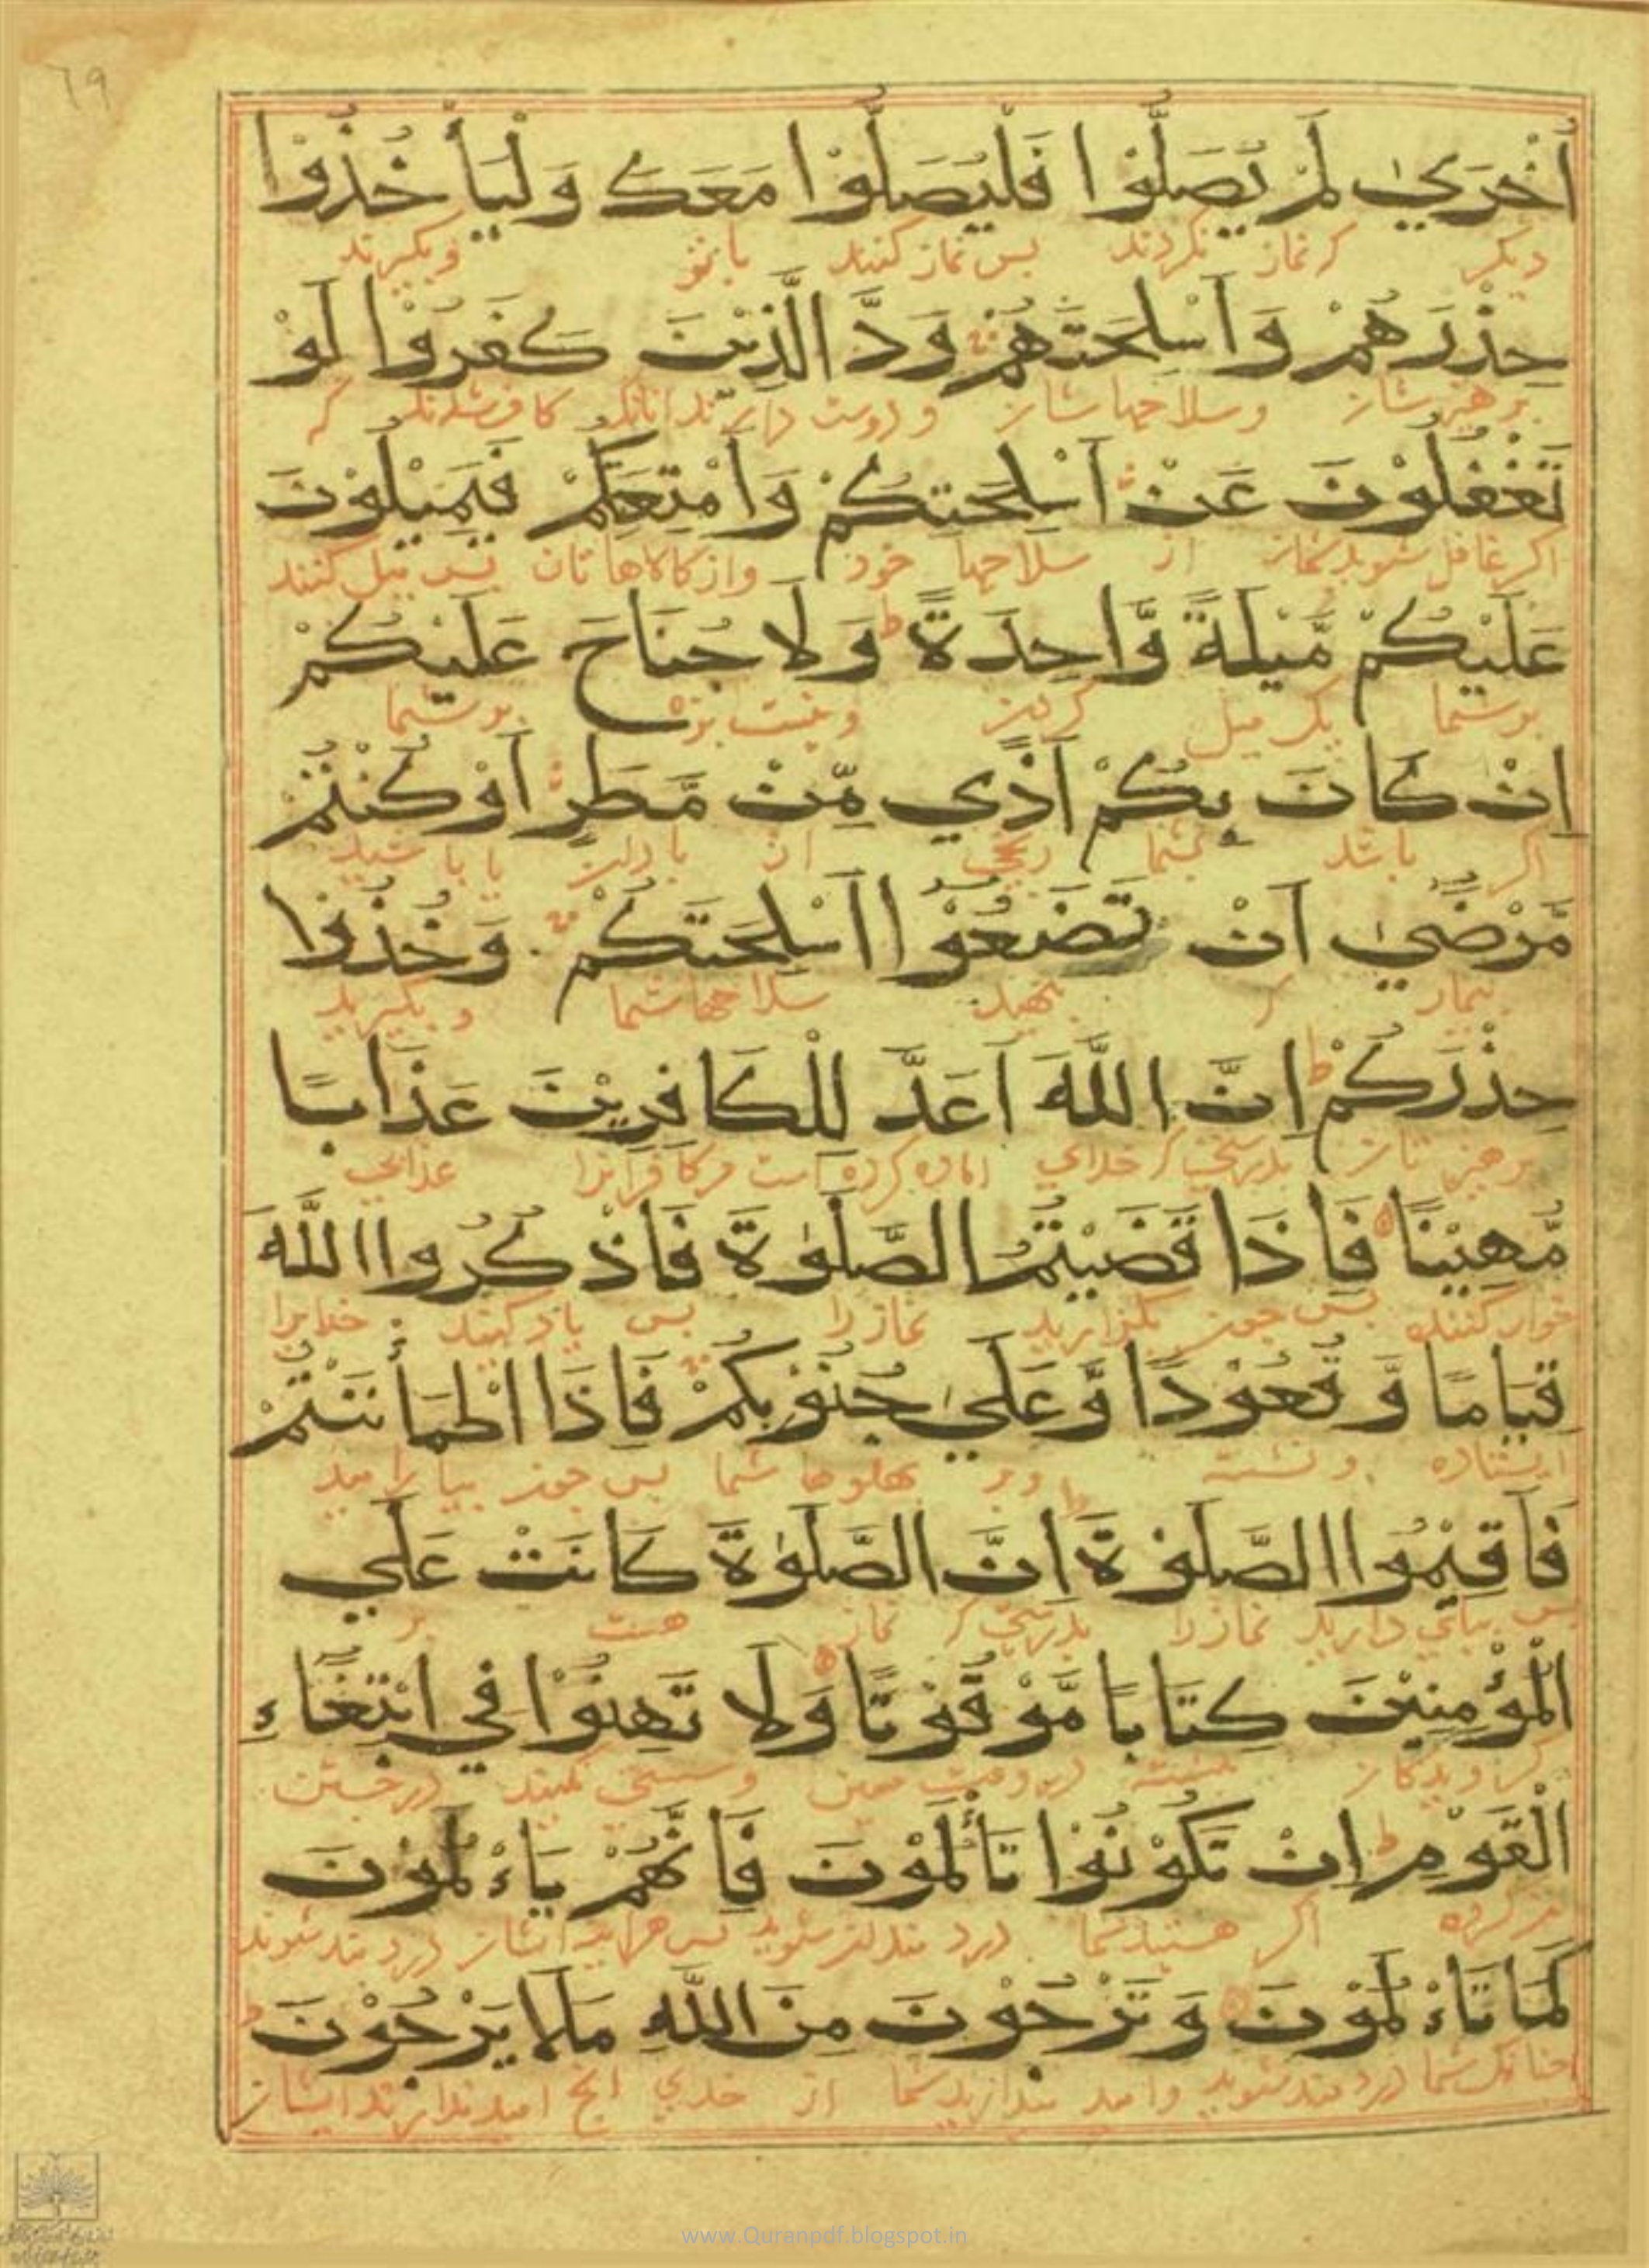 ٦٩
أُخْرَىٰ لَمْ يُصَلُّوْا فَلْيُصَلُّوْا مَعَكَ وَلْيَأْخُذُوْا
دیکر که نماز نکردند بس نماز کنند با تو و بکیرند
حِذْرَهُمْ وَاَسْلِحَتَهُمْ وَدَّ الَّذِيْنَ كَفَرُوْا لَوْ
و سلاحها شان و دوست دارند انانکه کافر شدند که
تَغْفُلُوْنَ عَنْ اَسْلِحَتِكُمْ وَاَمْتِعَتِكُمْ فَيَمِيْلُوْنَ
اکر غافل شوید از سلاحها خود و از کالاها تان بس میل کنند
عَلَيْكُمْ مَّيْلَةً وَّاحِدَةً ط وَلَا جُنَاحَ عَلَيْكُمْ
بر شما یک میل کردن و نیست بزه بر شما
اِنْ كَانَ بِكُمْ اَذًي مِّنْ مَّطَرٍ اَوْ كُنْتُمْ
اکر باشد بشما رنجی از باران یا باشید
مَّرْضٰي اَنْ تَضَعُوْا اَسْلِحَتَكُمْ وَخُذُوْا
بیمار که بنهید سلاحها شما و بکیرید
حِذْرَكُمْ ط اِنَّ اللّٰهَ اَعَدَّ لِلْكَافِرِيْنَ عَذَابًا
برهیز تان بدرستی که خدای اماده کرده است مر کافرانرا عذابی
مُّهِيْنًا فَاِذَا قَضَيْتُمُ الصَّلٰوةَ فَاذْكُرُوا اللّٰهَ
خوار کننده بس جون بکزارید نماز را بس یاد کنید خدایرا
قِيَامًا وَّقُعُوْدًا وَّعَلٰي جُنُوْبِكُمْ فَاِذَا اطْمَأْنَنْتُمْ
ایستاده و نشسته و بر بهلوها شما بس جون بیارامید
فَاَقِيْمُوا الصَّلٰوةَ اِنَّ الصَّلٰوةَ كَانَتْ عَلَي
بس ببای دارید نماز را بدرستی که نماز هست بر
الْمُؤْمِنِيْنَ كِتَابًا مَّوْقُوْتًا وَلَا تَهِنُوْا فِي ابْتِغَاءِ
کرویدکان نبشته در وقت معین و سستی مکنید در جستن
الْقَوْمِ ط اِنْ تَكُوْنُوْا تَأْلَمُوْنَ فَاِنَّهُمْ يَاءْلَمُوْنَ
کروه اکر هستید شما دردمند شوید بس هراینه ایشان دردمند شوند
كَمَا تَاءْلَمُوْنَ وَتَرْجُوْنَ مِنَ اللّٰهِ مَا لَا يَرْجُوْنَ ط
جنانک شما دردمند شوید و امید میدارید شما از خدای انج امید ندارند ایشان
www.Quranpdf.blogspot.in